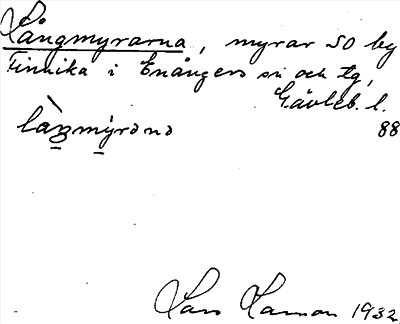 Långmyrarna, myrar SO by
Finnika i Enångers sn och tg,
Gävleb. l.
88
làŋmyrəna
Lars 1932